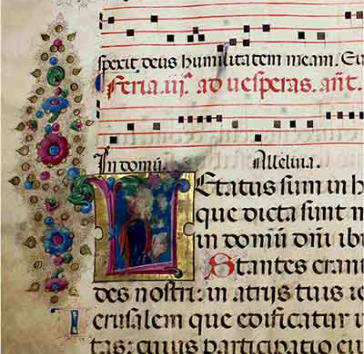 spexit deus humilitatem meam. Eu
Feria .iijᵃ. ad uesperas. añt.
In domū. Alleluia.
LEtatus sum in h
que dicta sunt m
in domū dñi ib
Stantes eran
des nostri: in atrijs tuis ie
Ierusalem que edificatur
tas: cuius participatio eiu